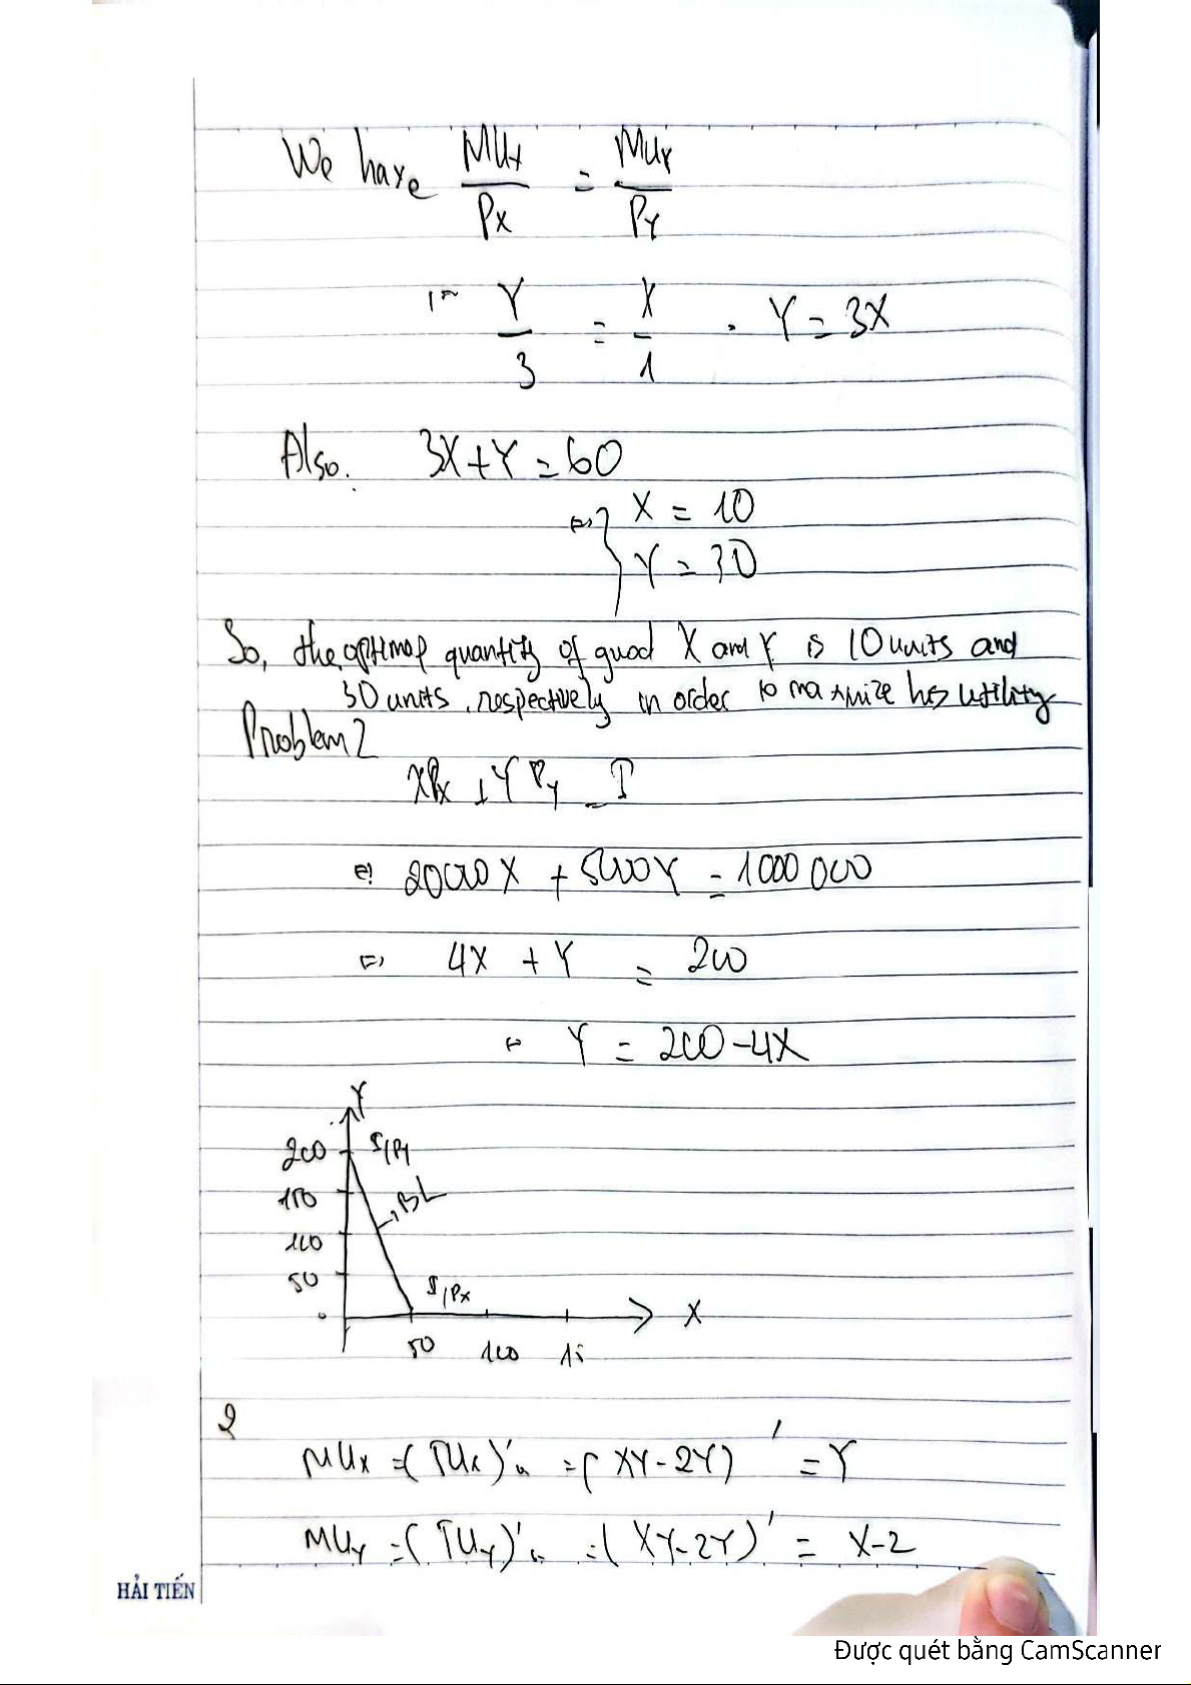 We have MUx/Px = MUY/PY
Y/3 = X/1 . Y = 3X
Also. 3X + Y = 60
X = 10
Y = 30
So, the optimal quantity of good X and Y is 10 units and
30 units, respectively in order to maximize his utility
Problem 2
XPx + YPy = I
20000X + 5000Y = 1000 000
4X + Y = 200
Y = 200 - 4X
Y
200 I/PY
150 BL
100
50 I/Px
0 X
50 100 15
2
MUx = (TUx)' = (XY - 2Y)' = Y
MUY = (TUY)' = (XY - 2Y)' = X - 2
HẢI TIẾN
Được quét bằng CamScanner